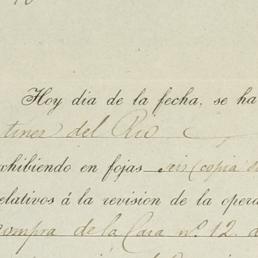 Hoy dia de la fecha, se ha
tiner del Rio
xhibiendo en fojas seis (copia
elativos á la revision de la opera
compra de la Casa nº. 12.